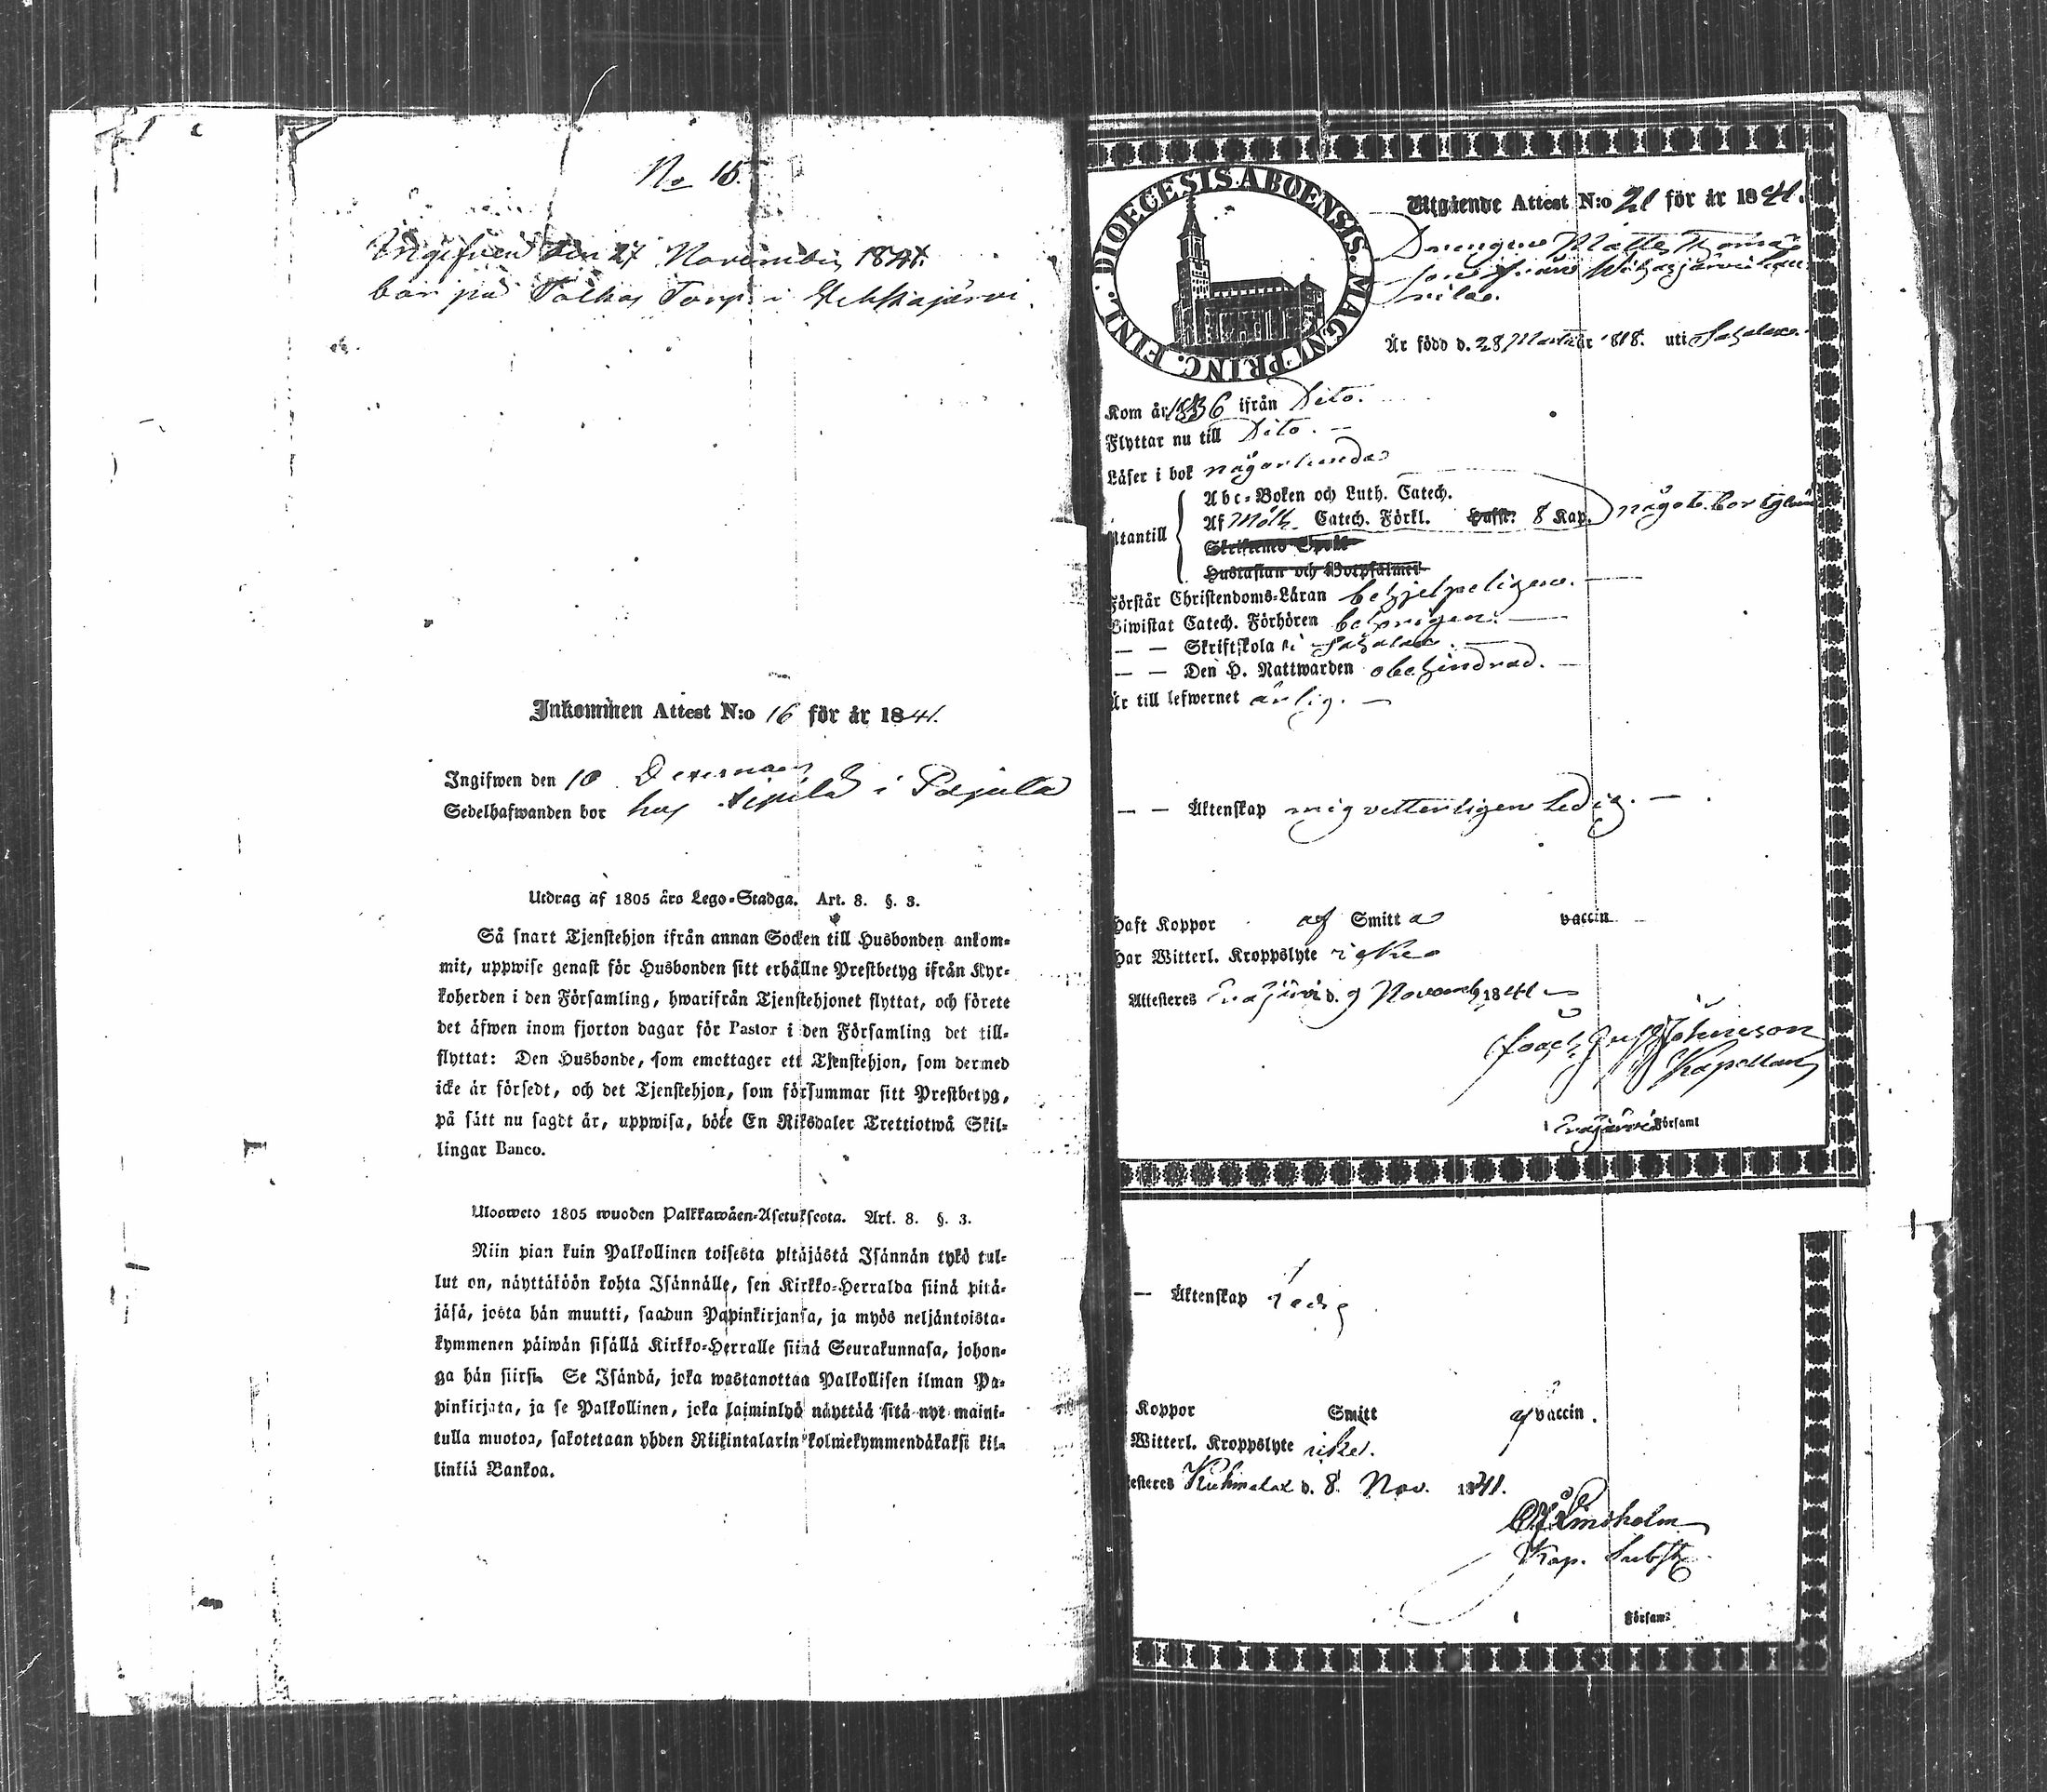 No 15.
Ingifven den 27 November 1841.
bor på Torp i
Inkommen Attest N:o 16 för år 1841.
Ingifwen den 10 December
Sedelhafwanden bor hos Sipilä i Pajula
Utdrag af 1805 års Lego-Stadga. Art. 8. §. 3.
Så snart Tjenstehjon ifrån annan Socken till Husbonden ankom-
mit, uppwise genast för Husbonden sitt erhållne Prestbetyg ifrån Kyr-
koherden i den Församling, hwarifrån Tjenstehjonet flyttat, och förete
det äfwen inom fjorton dagar för Pastor i den Församling det till-
flyttat: Den Husbonde, som emottager ett Tjenstehjon, som dermed
icke är försedt, och det Tjenstehjon, som försummar sitt Prestbetyg,
på sätt nu sagdt är, uppwisa, böte En Riksdaler Trettiotwå Skil-
lingar Banco.
Ulosweto 1805 wuoden Palkkawäen-Asetuksesta. Art. 8. §. 3.
Niin pian kuin Palkollinen toisesta pitäjästä Isännän tykö tul-
lut on, näyttäköön kohta Isännälle, sen Kirkko-Herralda siinä pitä-
jäsä, josta hän muutti, saadun Papinkirjansa, ja myös neljäntoista-
kymmenen päiwän sisällä Kirkko-Herralle siinä Seurakunnasa, johon-
ga hän siirsi. Se Isändä, joka wastanottaa Palkollisen ilman Pa-
pinkirjata, ja se Palkollinen, joka laiminlyö näyttää sitä nyt maini-
tulla muotoa, sakotetaan yhden Riikintalarin kolmekymmendäkaksi kil-
linkiä Bankoa.
DIOECESIS ABOENSIS. MAGNI PRINC. FINL.
Utgående Attest N:o 21 för år 1841.
Drengen Matts Thomas
son från
Är född d. 28 Martii år 1818. uti Sahalax.
Kom år 1836 ifrån Dito.
Flyttar nu till Dito. —
Läser i bok någorlunda
Abc-Boken och Luth. Catech.
Utantill Af Möll. Catech. Förkl. Hufst. 8 Kap. något bortglömt
Skriftenes Språk
Hustaflan och Botpsalmer
Förstår Christendoms-Läran behjelpeligen. —
Biwistat Catech. Förhören behörigen. —
— — Skriftskola i Sahalax. —
— — Den H. Nattwarden obehindrad. —
Är till lefwernet ärlig. —
— — Äktenskap mig vetterligen Ledig. —
Haft Koppor af Smitta vaccin
Har Witterl. Kroppslyte icke
Attesteres Erajärvi d. 9 November 1841
Joach. Gust. Johnsson
Kapellan
i Erajärvi Församl
— Äktenskap Ledig
Koppor Smitt af vaccin.
Witterl. Kroppslyte icke.
testeres Kuhmalax d. 8. Nov. 1841.
Lindholm
Kap. Subst.
i Församl